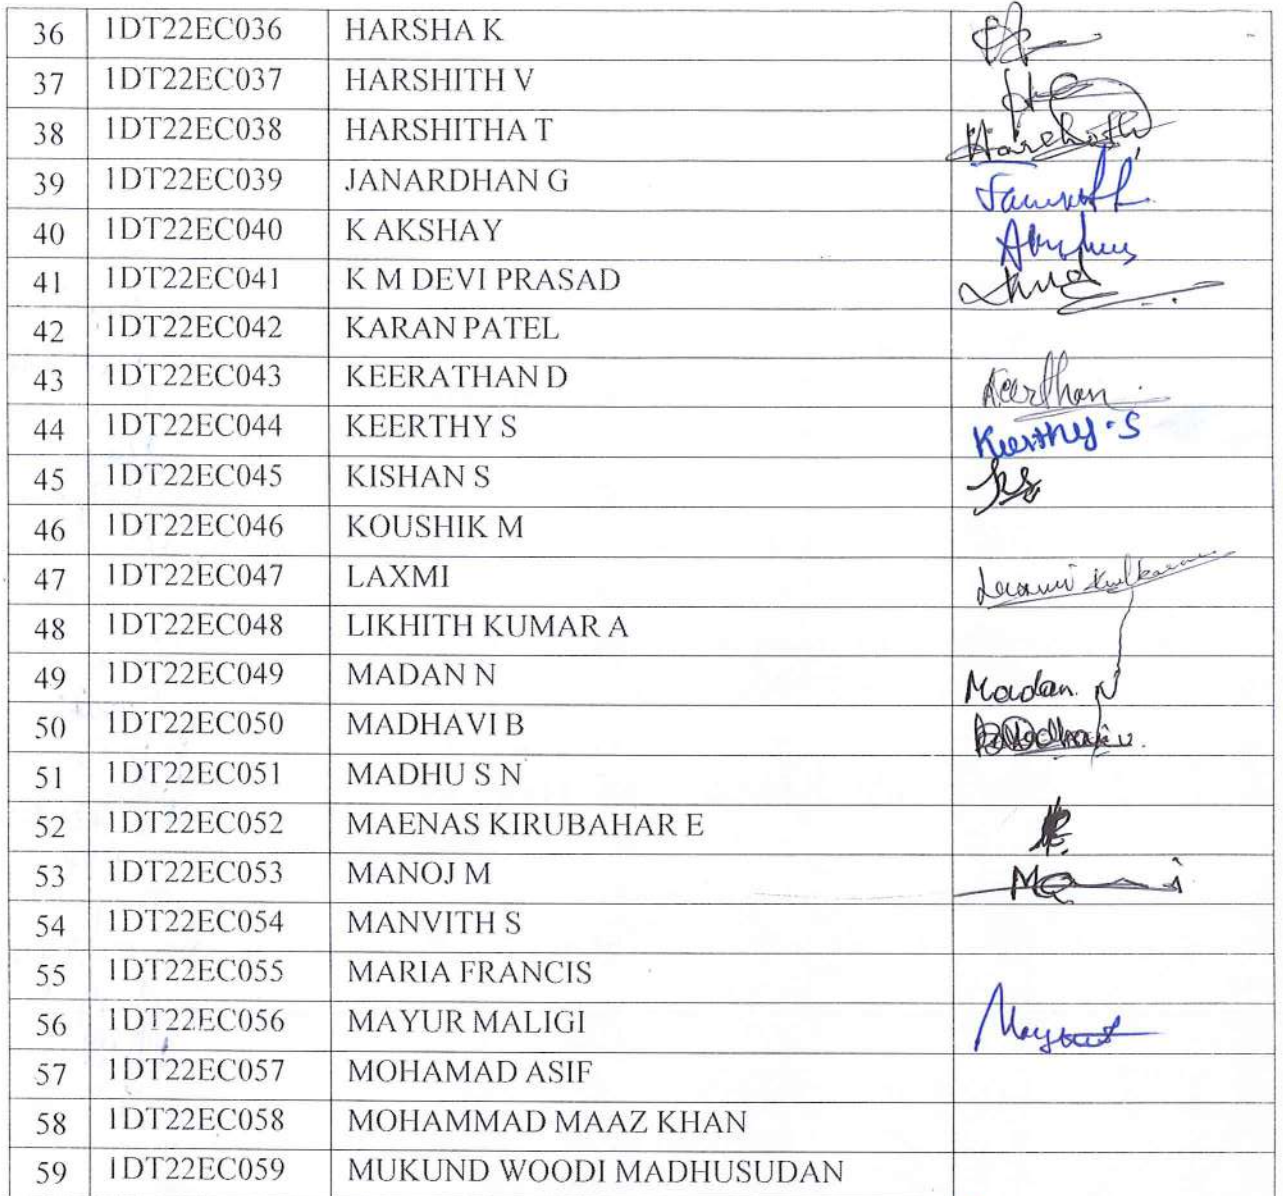 36 1DT22EC036 HARSHA K
37 1DT22EC037 HARSHITH V
38 1DT22EC038 HARSHITHA T
39 1DT22EC039 JANARDHAN G
40 1DT22EC040 K AKSHAY
41 1DT22EC041 K M DEVI PRASAD
42 1DT22EC042 KARAN PATEL
43 1DT22EC043 KEERATHAN D Keerthan
44 1DT22EC044 KEERTHY S Keerthy.S
45 1DT22EC045 KISHAN S
46 1DT22EC046 KOUSHIK M
47 1DT22EC047 LAXMI
48 1DT22EC048 LIKHITH KUMAR A
49 1DT22EC049 MADAN N Madan. N
50 1DT22EC050 MADHAVI B
51 1DT22EC051 MADHU S N
52 1DT22EC052 MAENAS KIRUBAHAR E
53 1DT22EC053 MANOJ M
54 1DT22EC054 MANVITH S
55 1DT22EC055 MARIA FRANCIS
56 1DT22EC056 MAYUR MALIGI
57 1DT22EC057 MOHAMAD ASIF
58 1DT22EC058 MOHAMMAD MAAZ KHAN
59 1DT22EC059 MUKUND WOODI MADHUSUDAN